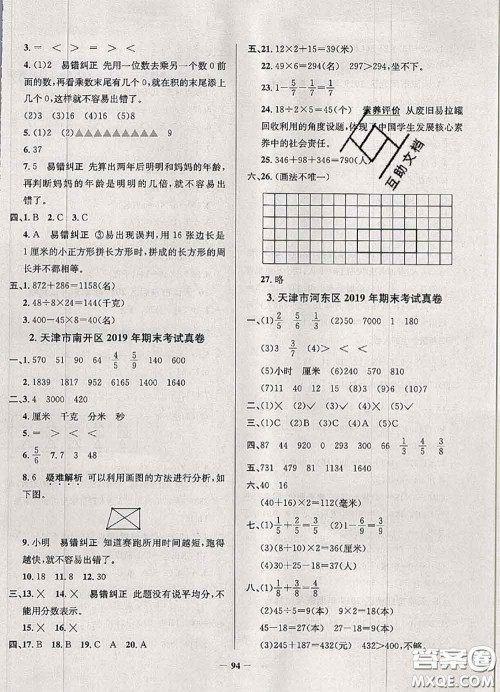 3. = < > > = >
4. (1)2 易错纠正 先用一位数去乘另一个数0前
面的数,再看乘数末尾有几个0,就在积的末尾添上
几个0,这样就不容易出错了。
(2)3 (3)16 (4)3
5. (1)2 (2)△▲▲▲▲▲▲▲▲
6. 37
7. 5 易错纠正 先算出两年后明明和妈妈的年龄,
再判断妈妈的年龄是明明的几倍,就不容易出
错了。
四、1. B 2. C 3. C
4. A 易错纠正 ③易出现误判,用16张边长是
1厘米的小正方形拼长方形时,拼成的长方形的周
长并不是固定的。
五、1. 872+286=1158(名)
2. 48÷8×24=144(千克)
3. 400-45×8=40(名)
2. 天津市南开区2019年期末考试真卷
一、1. 570 51 90 4/5 5/9 144
2. 1839 1817 952 1551 1640 1640
二、3. 4
4. 厘米 千克 分米 秒
5. = > < =
6. 5/6 7. 7 3 48
8. 6 疑难解析 可以利用画图的方法进行分析,如
下图。
9. 小明 易错纠正 知道赛跑所用时间短,跑得
越快,就不容易出错了。
10. 18 11. 8 12. 30
三、13. × 14. × 易错纠正 此题没有说平均分,不
能用分数表示。
15. × 16. ×
四、17. B 18. C 19. A 20. A
五、21. 12×2+15=39(米)
22. 49×6=294(名) 297>294,坐不下。
23. 1-5/7-1/7=1/7
24. 18÷2×5=45(个) 素养评价 从废旧易拉罐
回收利用的角度设题,体现了中国学生发展核心素
养中的社会责任。
25. 346+98+346=790(人)
六、26. (画法不唯一)
27. 略
3. 天津市河东区2019年期末考试真卷
(3)2/9 3/9 (4)> < < =
(5)小时 厘米 千米 千克 (6)7 2
(7)10 40 15 12 (8)15
二、(1)× (2)× (3)√ (4)× (5)√
三、(1)A (2)B (3)C (4)B (5)C
四、87 244 920 0 32 66 1/3 3/4 5/8
五、731 479 1584 1632 4816 7512
六、40 16
(40+16)×2=112(毫米)
七、(1)1/5+2/5=3/5 (2)1-3/5=2/5
(3)(24+12)×2=36(厘米)
八、(1)1/8+3/8=4/8
(2)45÷5=9(本) 9×2=18(本)
45-18=27(本) 27-18=9(本)
(3)245+187=432(元) 432<451,不够。
94
互助文档
答案圈
MXQE.COM